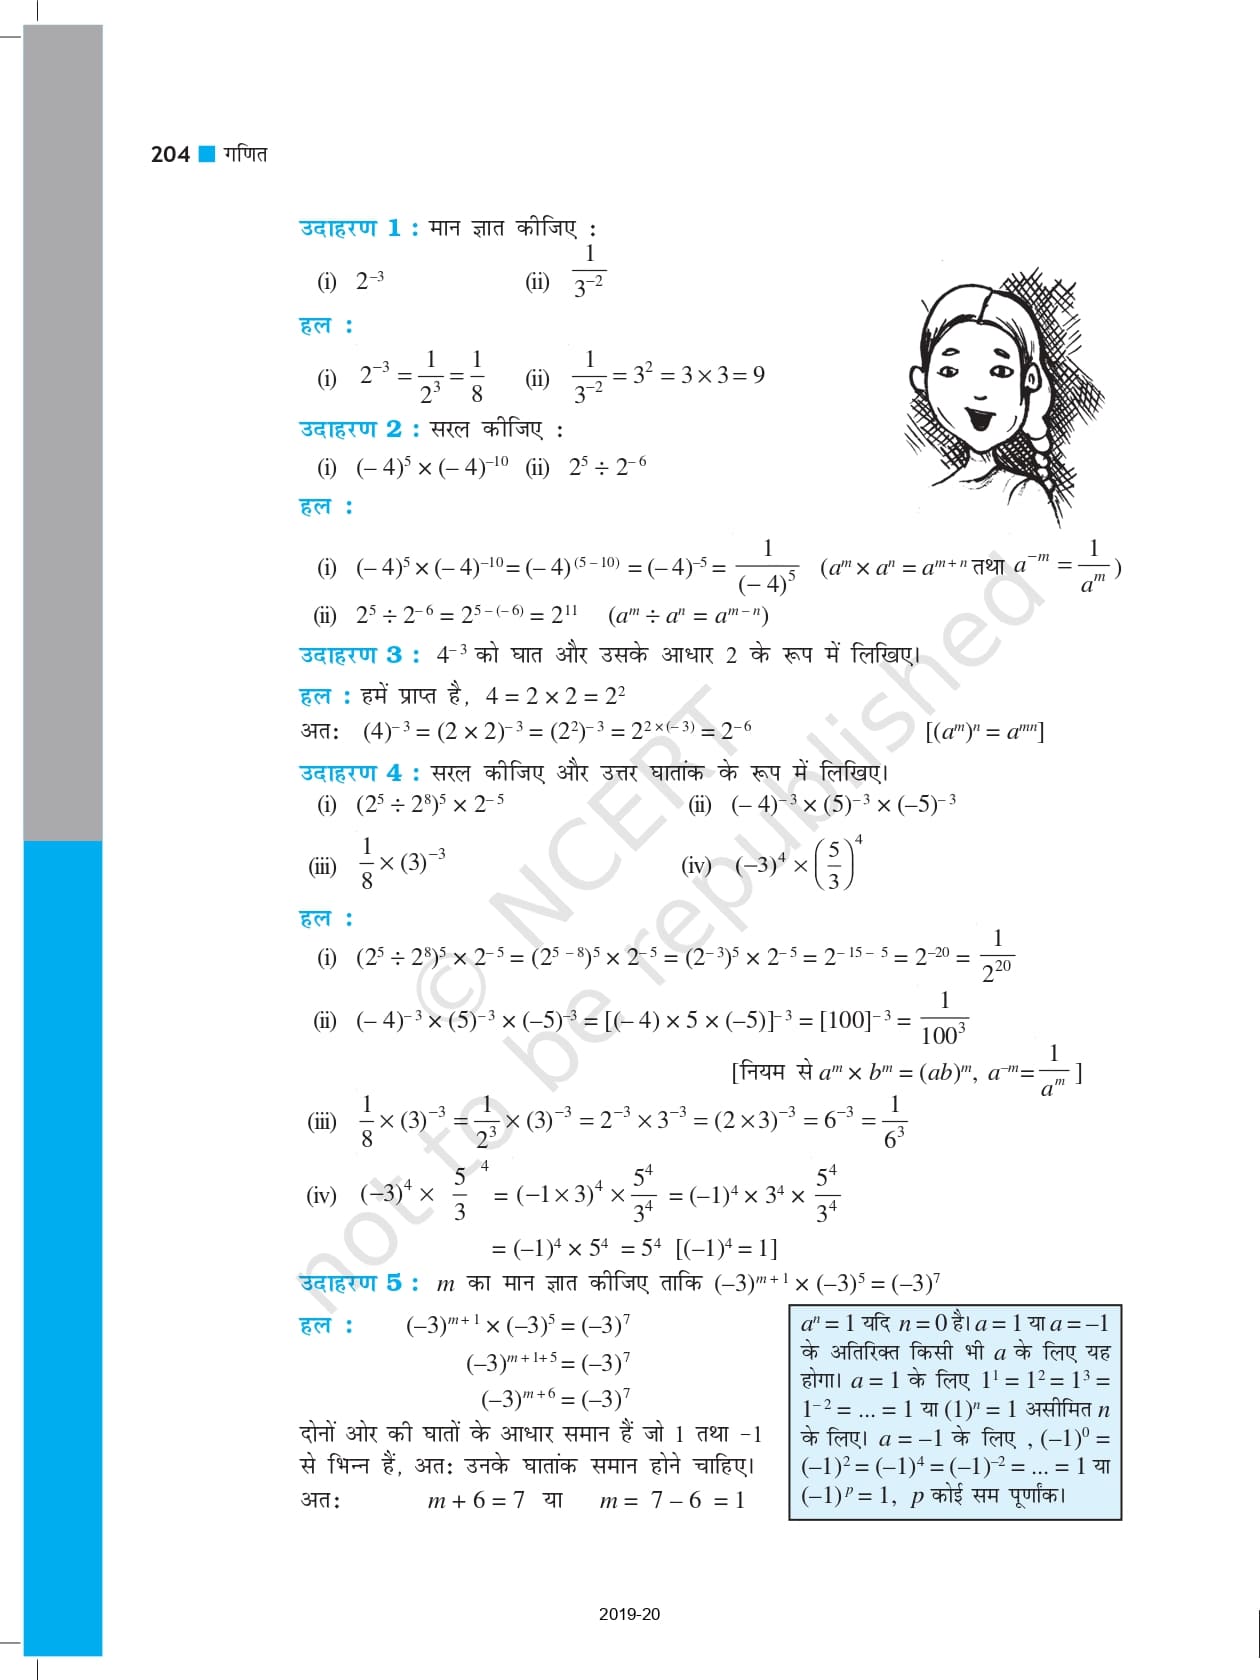 204 ■ गणित
उदाहरण 1 : मान ज्ञात कीजिए :
(i) 2⁻³ (ii) 1/3⁻²
हल :
(i) 2⁻³ = 1/2³ = 1/8 (ii) 1/3⁻² = 3² = 3 × 3 = 9
उदाहरण 2 : सरल कीजिए :
(i) (– 4)⁵ × (– 4)⁻¹⁰ (ii) 2⁵ ÷ 2⁻⁶
हल :
(i) (– 4)⁵ × (– 4)⁻¹⁰ = (– 4)⁽⁵ ⁻ ¹⁰⁾ = (– 4)⁻⁵ = 1/(– 4)⁵ (aᵐ × aⁿ = aᵐ⁺ⁿ तथा a⁻ᵐ = 1/aᵐ )
(ii) 2⁵ ÷ 2⁻⁶ = 2⁵⁻⁽⁻⁶⁾ = 2¹¹ (aᵐ ÷ aⁿ = aᵐ⁻ⁿ)
उदाहरण 3 : 4⁻³ को घात और उसके आधार 2 के रूप में लिखिए।
हल : हमें प्राप्त है, 4 = 2 × 2 = 2²
अतः (4)⁻³ = (2 × 2)⁻³ = (2²)⁻³ = 2^(2 × (– 3)) = 2⁻⁶ [(aᵐ)ⁿ = aᵐⁿ]
उदाहरण 4 : सरल कीजिए और उत्तर घातांक के रूप में लिखिए।
(i) (2⁵ ÷ 2⁸)⁵ × 2⁻⁵ (ii) (– 4)⁻³ × (5)⁻³ × (–5)⁻³
(iii) 1/8 × (3)⁻³ (iv) (–3)⁴ × (5/3)⁴
हल :
(i) (2⁵ ÷ 2⁸)⁵ × 2⁻⁵ = (2⁵⁻⁸)⁵ × 2⁻⁵ = (2⁻³)⁵ × 2⁻⁵ = 2⁻¹⁵⁻⁵ = 2⁻²⁰ = 1/2²⁰
(ii) (– 4)⁻³ × (5)⁻³ × (–5)⁻³ = [(– 4) × 5 × (–5)]⁻³ = [100]⁻³ = 1/100³
[नियम से aᵐ × bᵐ = (ab)ᵐ, a⁻ᵐ = 1/aᵐ ]
(iii) 1/8 × (3)⁻³ = 1/2³ × (3)⁻³ = 2⁻³ × 3⁻³ = (2 × 3)⁻³ = 6⁻³ = 1/6³
(iv) (–3)⁴ × 5/3 ⁴ = (–1 × 3)⁴ × 5⁴/3⁴ = (–1)⁴ × 3⁴ × 5⁴/3⁴
= (–1)⁴ × 5⁴ = 5⁴ [(–1)⁴ = 1]
उदाहरण 5 : m का मान ज्ञात कीजिए ताकि (–3)ᵐ⁺¹ × (–3)⁵ = (–3)⁷
हल : (–3)ᵐ⁺¹ × (–3)⁵ = (–3)⁷
(–3)ᵐ⁺¹⁺⁵ = (–3)⁷
(–3)ᵐ⁺⁶ = (–3)⁷
दोनों ओर की घातों के आधार समान हैं जो 1 तथा –1
से भिन्न हैं, अतः उनके घातांक समान होने चाहिए।
अतः m + 6 = 7 या m = 7 – 6 = 1
aⁿ = 1 यदि n = 0 है। a = 1 या a = –1
के अतिरिक्त किसी भी a के लिए यह
होगा। a = 1 के लिए 1¹ = 1² = 1³ =
1⁻² = ... = 1 या (1)ⁿ = 1 असीमित n
के लिए। a = –1 के लिए , (–1)⁰ =
(–1)² = (–1)⁴ = (–1)⁻² = ... = 1 या
(–1)ᵖ = 1, p कोई सम पूर्णांक।
© NCERT
not to be republished
2019-20